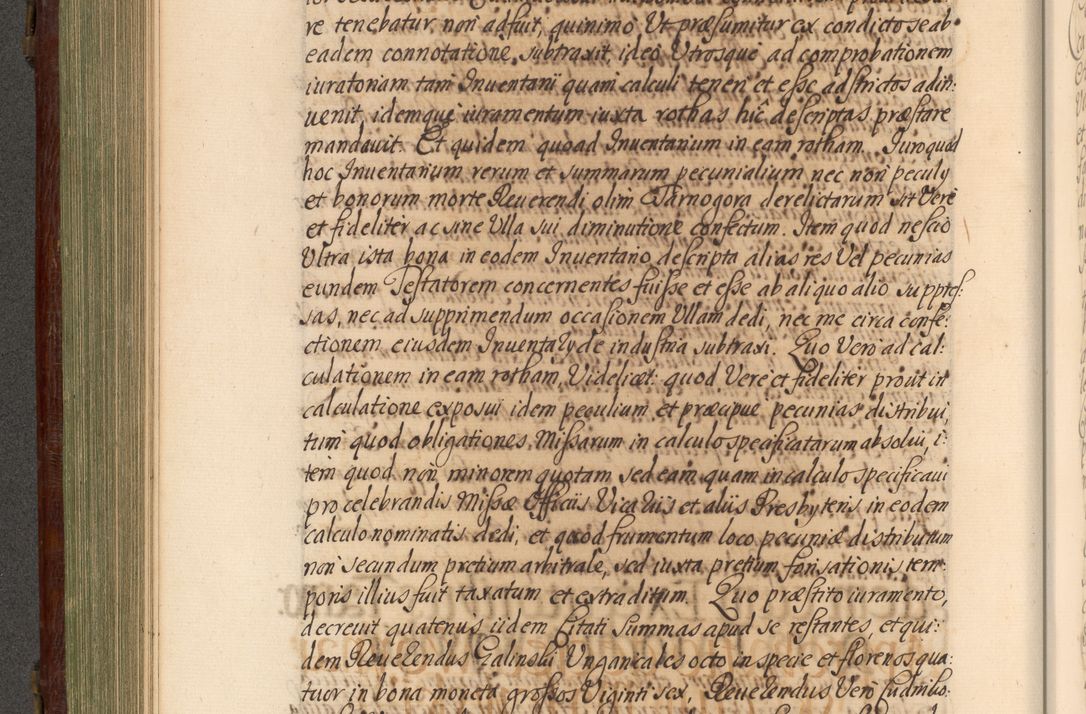 re tenebatur, non adfuit, quinimo Vt præsumitur ex condicto se ab
eadem connotatione subtraxit, ideo Vtrosque ad comprobationem
iuratoriam tam Inventarii quam calculi teneri et esse adstrictos adin:
venit, idemque iuramentum iuxta rothas hîc descriptas præstare
mandavit. Et quidem quoad Inventarium in eam rotham. Iuro quod
hoc Inventarium rerum et summarum pecunialium nec non peculy
et bonorum morte Reverendi olim Tarnogora derelictarum sit Vere
et fideliter ac sine Vlla sui diminutione confectum. Item quod nescio
Vltra ista bona in eodem Inventario descripta alias res Vel pecunias
eundem Testatorem concernentes fuisse et esse ab aliquo alio suppres:
sas, nec ad supprimendum occasionem Vllam dedi, nec me circa confe:
ctionem eiusdem Inventary de industria subtraxi. Quo Vero ad cal:
culationem in eam rotham, Videlicet: quod Vere et fideliter prout in
calculatione exposui idem peculium et præcipue pecunias distribui,
tum quod obligationes Missarum in calculo specificatarum absolui, i:
tem quod non minorem quotam sed eam quam in calculo specificavi
pro celebrandis Missæ Officiis Vicariis et aliis Presbyteris in eodem
calculo nominatis dedi, et quod frumentum loco pecuniæ distributum
non secundum pretium arbitrale, sed iuxta pretium forisationis tem:
poris illius fuit taxatum et extraditum. Quo præstito iuramento,
decrevit quatenus iidem Citati Summas apud se restantes, et qui:
dem Reverendus Galinski Vngaricales octo in specie et florenos qua:
tuor in bona moneta grossos Viginti sex, Reverendus Vero